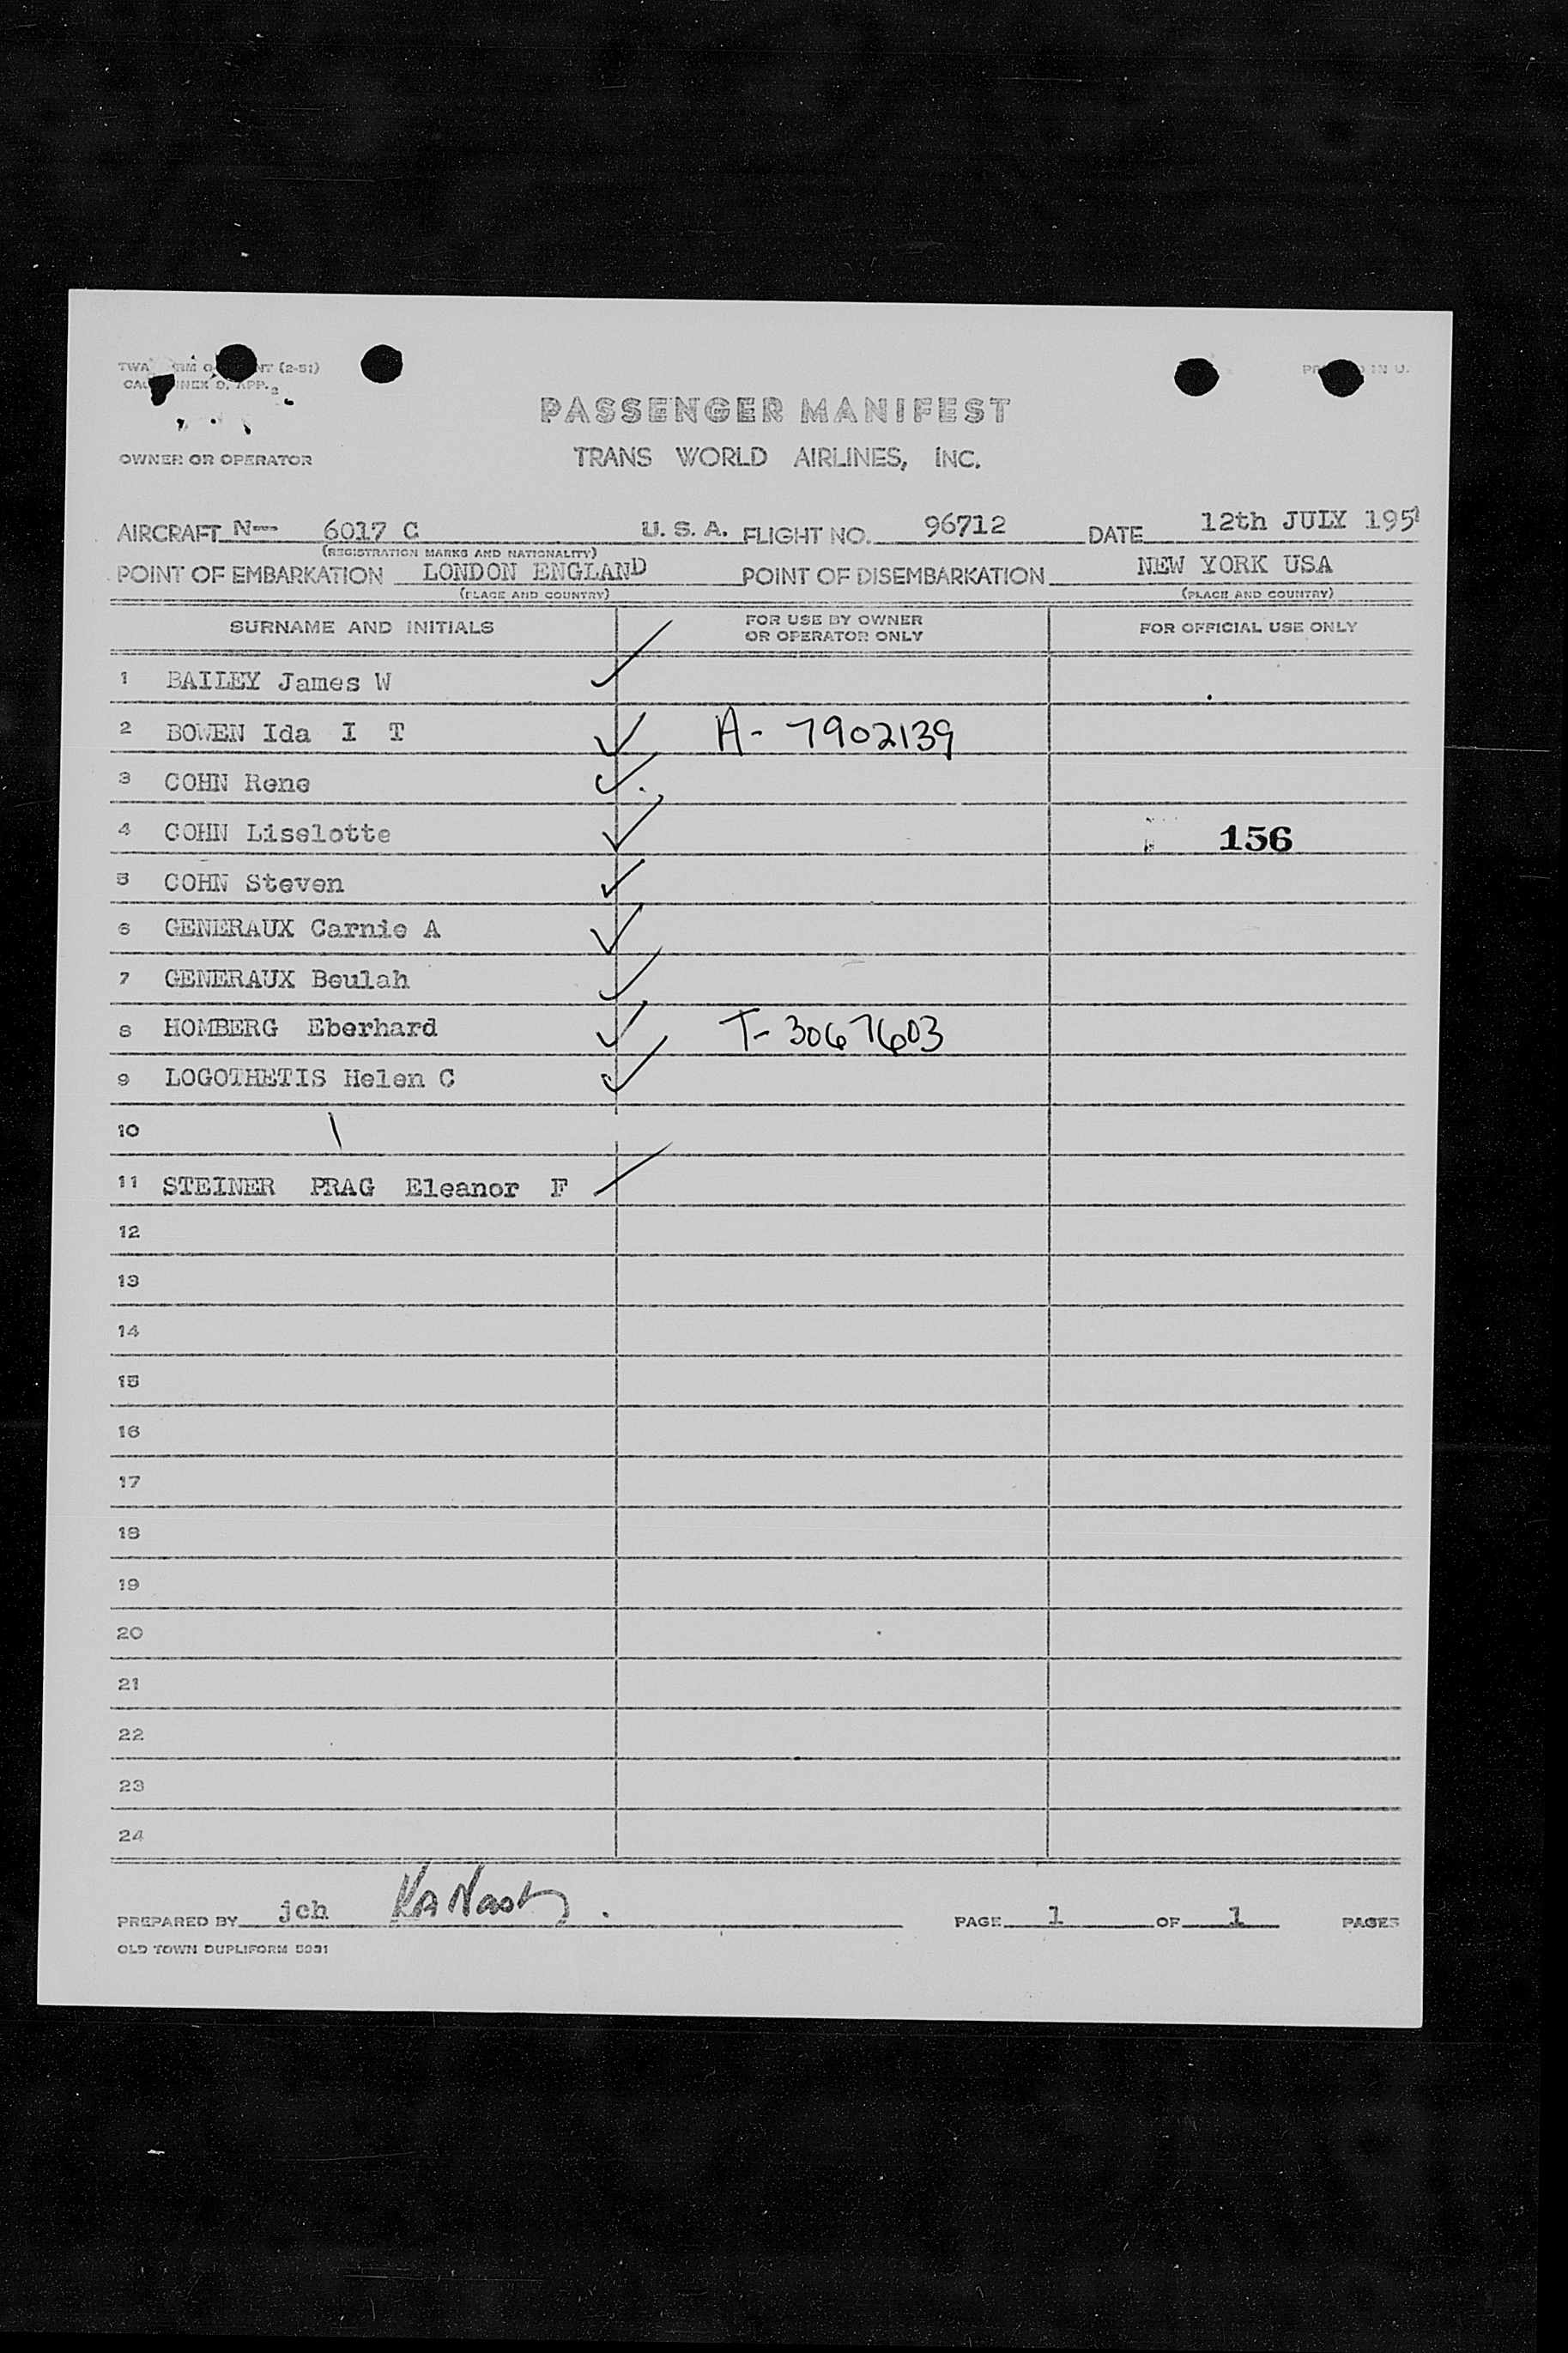 TWA (2-51)
PASSENGER MANIFEST
OWNER OR OPERATOR TRANS WORLD AIRLINES, INC.
AIRCRAFT N-- 6017 C U. S. A. FLIGHT NO. 96712 DATE 12th JULY 195
(REGISTRATION MARKS AND NATIONALITY)
POINT OF EMBARKATION LONDON ENGLAND POINT OF DISEMBARKATION NEW YORK USA
(PLACE AND COUNTRY) (PLACE AND COUNTRY)
SURNAME AND INITIALS FOR USE BY OWNER OR OPERATOR ONLY FOR OFFICIAL USE ONLY
1 BAILEY James W
2 BOWEN Ida I T A- 7902139
3 COHN Rene
4 COHN Liselotte 156
5 COHN Steven
6 GENERAUX Carnie A
7 GENERAUX Beulah
8 HOMBERG Eberhard T- 3067603
9 LOGOTHETIS Helen C
10
11 STEINER PRAG Eleanor F
12
13
14
15
16
17
18
19
20
21
22
23
24
PREPARED BY jch PAGE 1 OF 1 PAGES
OLD TOWN DUPLIFORM 5031